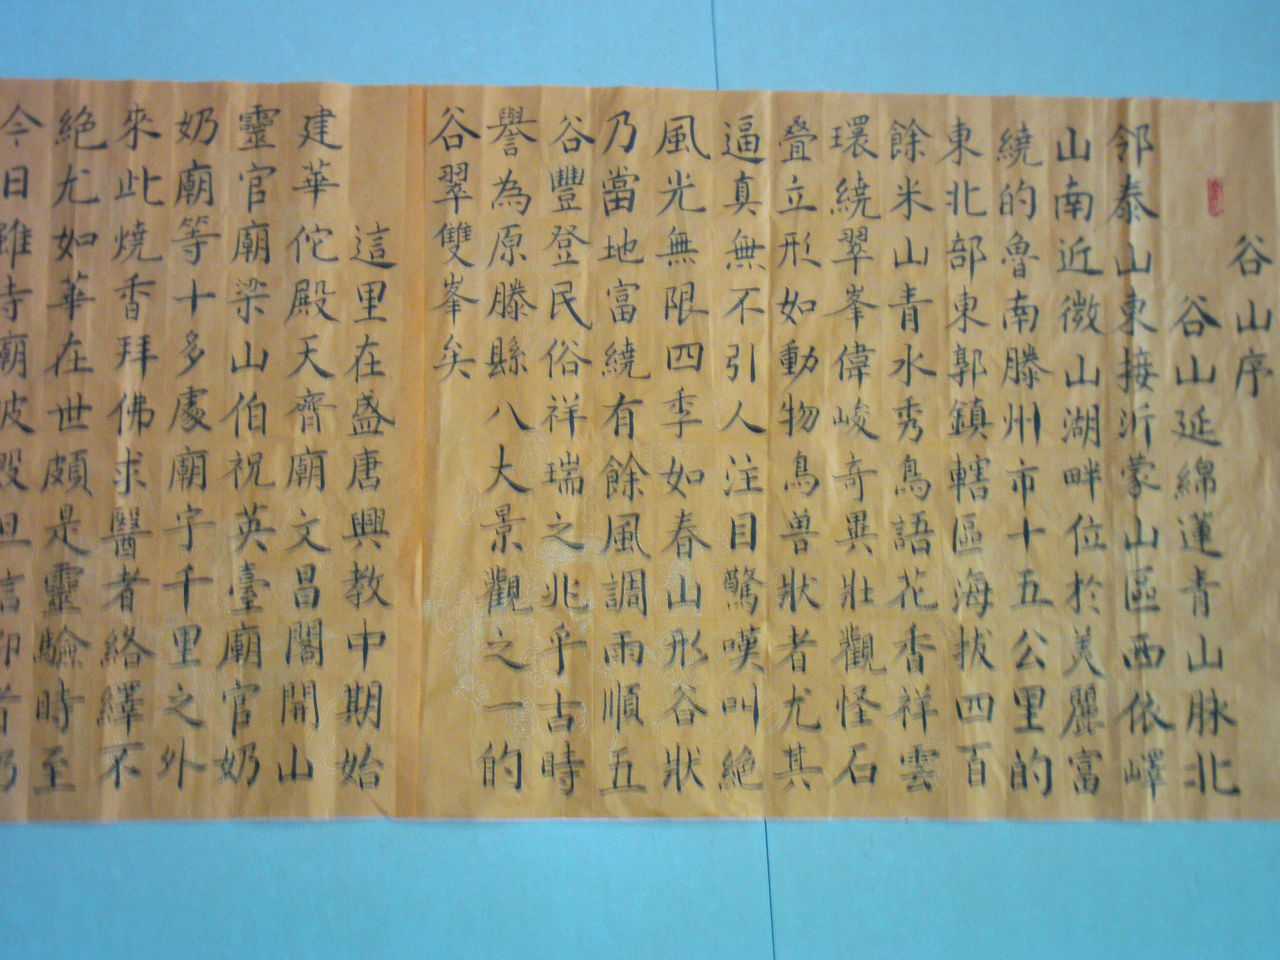 谷山序
谷山延綿蓮青山脉北
邻泰山東接沂蒙山區西依嶧
山南近微山湖畔位於美麗富
繞的魯南滕州市十五公里的
東北部東郭鎮轄區海拔四百
餘米山青水秀鳥語花香祥雲
環繞翠峯偉峻奇異壯觀怪石
叠立形如動物鸟兽狀者尤其
逼真無不引人注目驚嘆叫絕
風光無限四季如春山形谷狀
乃當地富繞有餘風調雨順五
谷豐登民俗祥瑞之兆乎古時
譽為原滕縣八大景觀之一的
谷翠雙峯矣
這里在盛唐興教中期始
建華佗殿天齊廟文昌閣開山
靈官廟梁山伯祝英臺廟官奶
奶廟等十多處廟宇千里之外
來此燒香拜佛求醫者絡繹不
絕尤如華在世頗是靈驗時至
今日雖寺廟波毀但信仰者乃